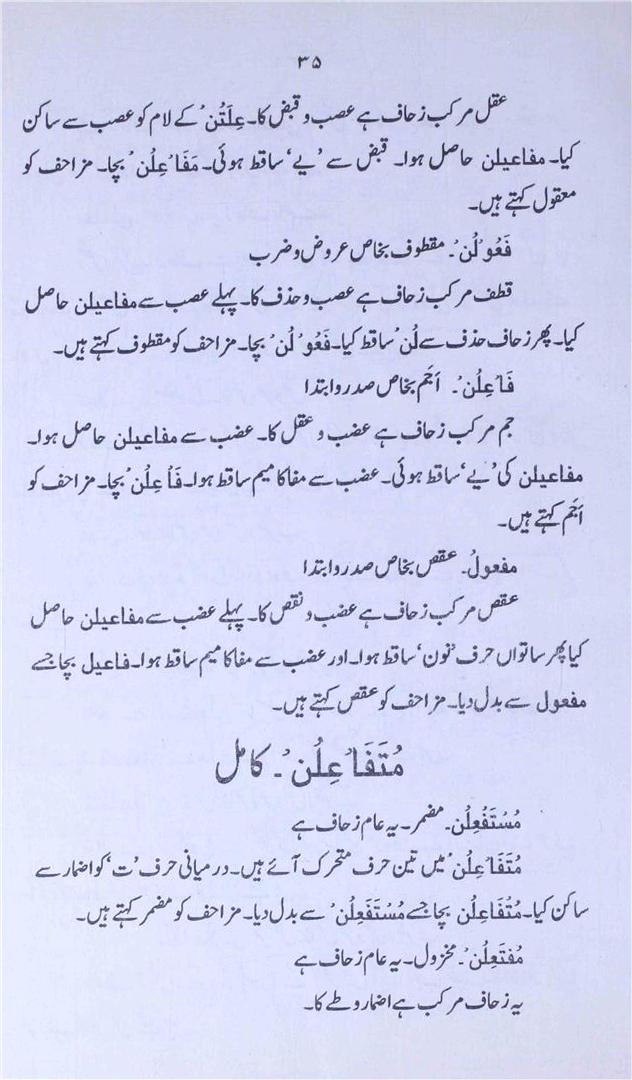 ۳۵
عقل مرکب زحاف ہے عصب و قبض کا۔ عِلَتُن ْ کے لام کو عصب سے ساکن
کیا۔ مفاعیلن حاصل ہوا۔ قبض سے ’یے‘ ساقط ہوئی۔ مَفَا ْعِلُن ْ بچا۔ مزاحف کو
معقول کہتے ہیں۔
فَعُو ْلُن ْ۔ مقطوف بخاص عروض و ضرب
قطف مرکب زحاف ہے عصب و حذف کا۔ پہلے عصب سے مفاعیلن حاصل
کیا۔ پھر زحاف حذف سے لُن ْ ساقط کیا۔ فَعُو ْ لُن ْ بچا۔ مزاحف کو مقطوف کہتے ہیں۔
فَا ْعِلُن ْ۔ اَجَم بخاص صدر و ابتدا
جم مرکب زحاف ہے عضب و عقل کا۔ عضب سے مفاعیلن حاصل ہوا۔
مفاعیلن کی ’یے‘ ساقط ہوئی۔ عضب سے مفا کا میم ساقط ہوا۔ فَا ْعِلُن ْ بچا۔ مزاحف کو
اَجَم کہتے ہیں۔
مفعولُ۔ عقص بخاص صدر و ابتدا
عقص مرکب زحاف ہے عضب و نقص کا۔ پہلے عضب سے مفاعیلن حاصل
کیا پھر ساتواں حرف ’نون‘ ساقط ہوا۔ اور عضب سے مفا کا میم ساقط ہوا۔ فاعیل بچا جسے
مفعول سے بدل دیا۔ مزاحف کو عقص کہتے ہیں۔
مُتَفَا ْعِلُن ْ۔ کامل
مُسْتَفْعِلُن۔ مضمر۔ یہ عام زحاف ہے
مُتَفَا ْعِلُن ْ میں تین حرف متحرک آئے ہیں۔ درمیانی حرف ’ت‘ کو اضمار سے
ساکن کیا۔ مُتْفَاعِلُن بچا جسے مُسْتَفْعِلُن ْ سے بدل دیا۔ مزاحف کو مضمر کہتے ہیں۔
مُفْتَعِلُن ْ۔ مخزول۔ یہ عام زحاف ہے
یہ زحاف مرکب ہے اضمار و طے کا۔